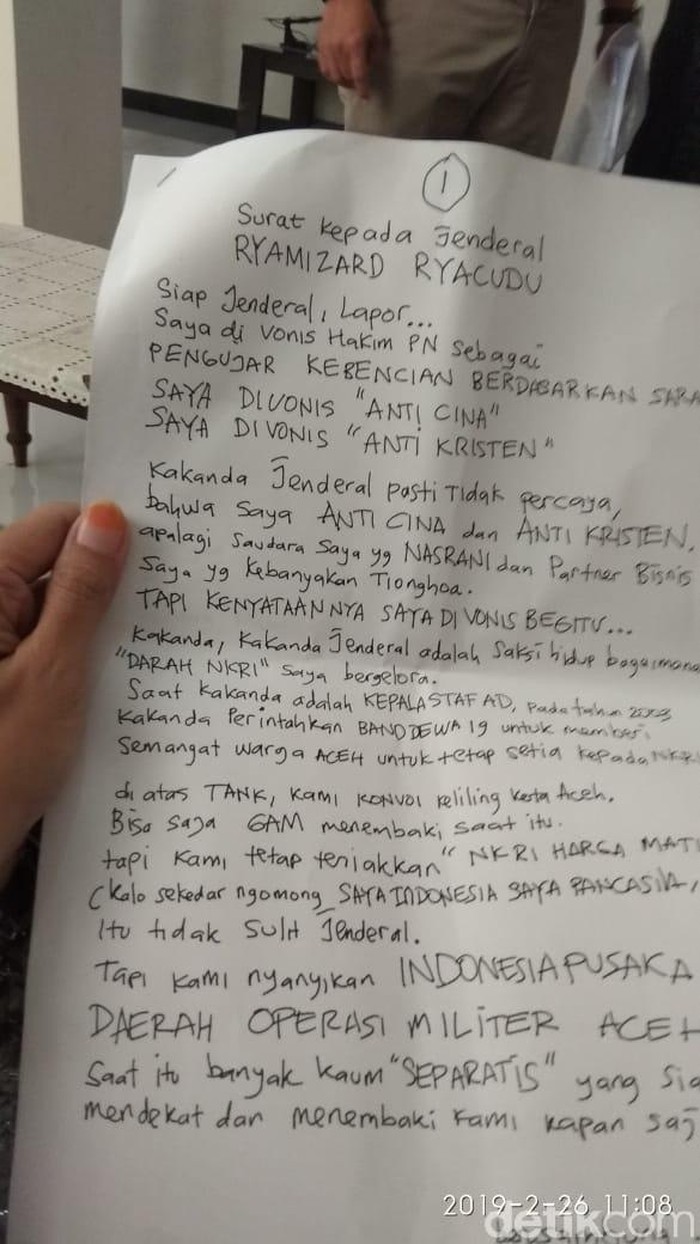 1
Surat kepada Jenderal
RYAMIZARD RYACUDU
Siap Jenderal, Lapor...
Saya di Vonis Hakim PN sebagai
PENGUJAR KEBENCIAN BERDASARKAN SARA
SAYA DIVONIS "ANTI CINA"
SAYA DIVONIS "ANTI KRISTEN"
Kakanda Jenderal pasti Tidak percaya,
bahwa saya ANTI CINA dan ANTI KRISTEN,
apalagi Saudara Saya yg NASRANI dan Partner Bisnis
Saya yg kebanyakan Tionghoa.
TAPI KENYATAANNYA SAYA DIVONIS BEGITU...
Kakanda, Kakanda Jenderal adalah saksi hidup bagaimana
"DARAH NKRI" saya bergelora.
Saat kakanda adalah KEPALA STAF AD, pada tahun 2003
Kakanda Perintahkan BAND DEWA 19 untuk memberi
Semangat warga ACEH untuk tetap setia kepada NKRI
di atas TANK, kami KONVOI keliling kota Aceh.
Bisa saja GAM menembaki saat itu.
tapi kami tetap teriakkan "NKRI HARGA MATI
(kalo sekedar ngomong SAYA INDONESIA SAYA PANCASILA,
Itu tidak Sulit Jenderal.
Tapi kami nyanyikan INDONESIA PUSAKA
DAERAH OPERASI MILITER ACEH
Saat itu banyak kaum "SEPARATIS" yang sia
mendekat dan menembaki kami kapan saj
2019-2-26 11:08
detikcom